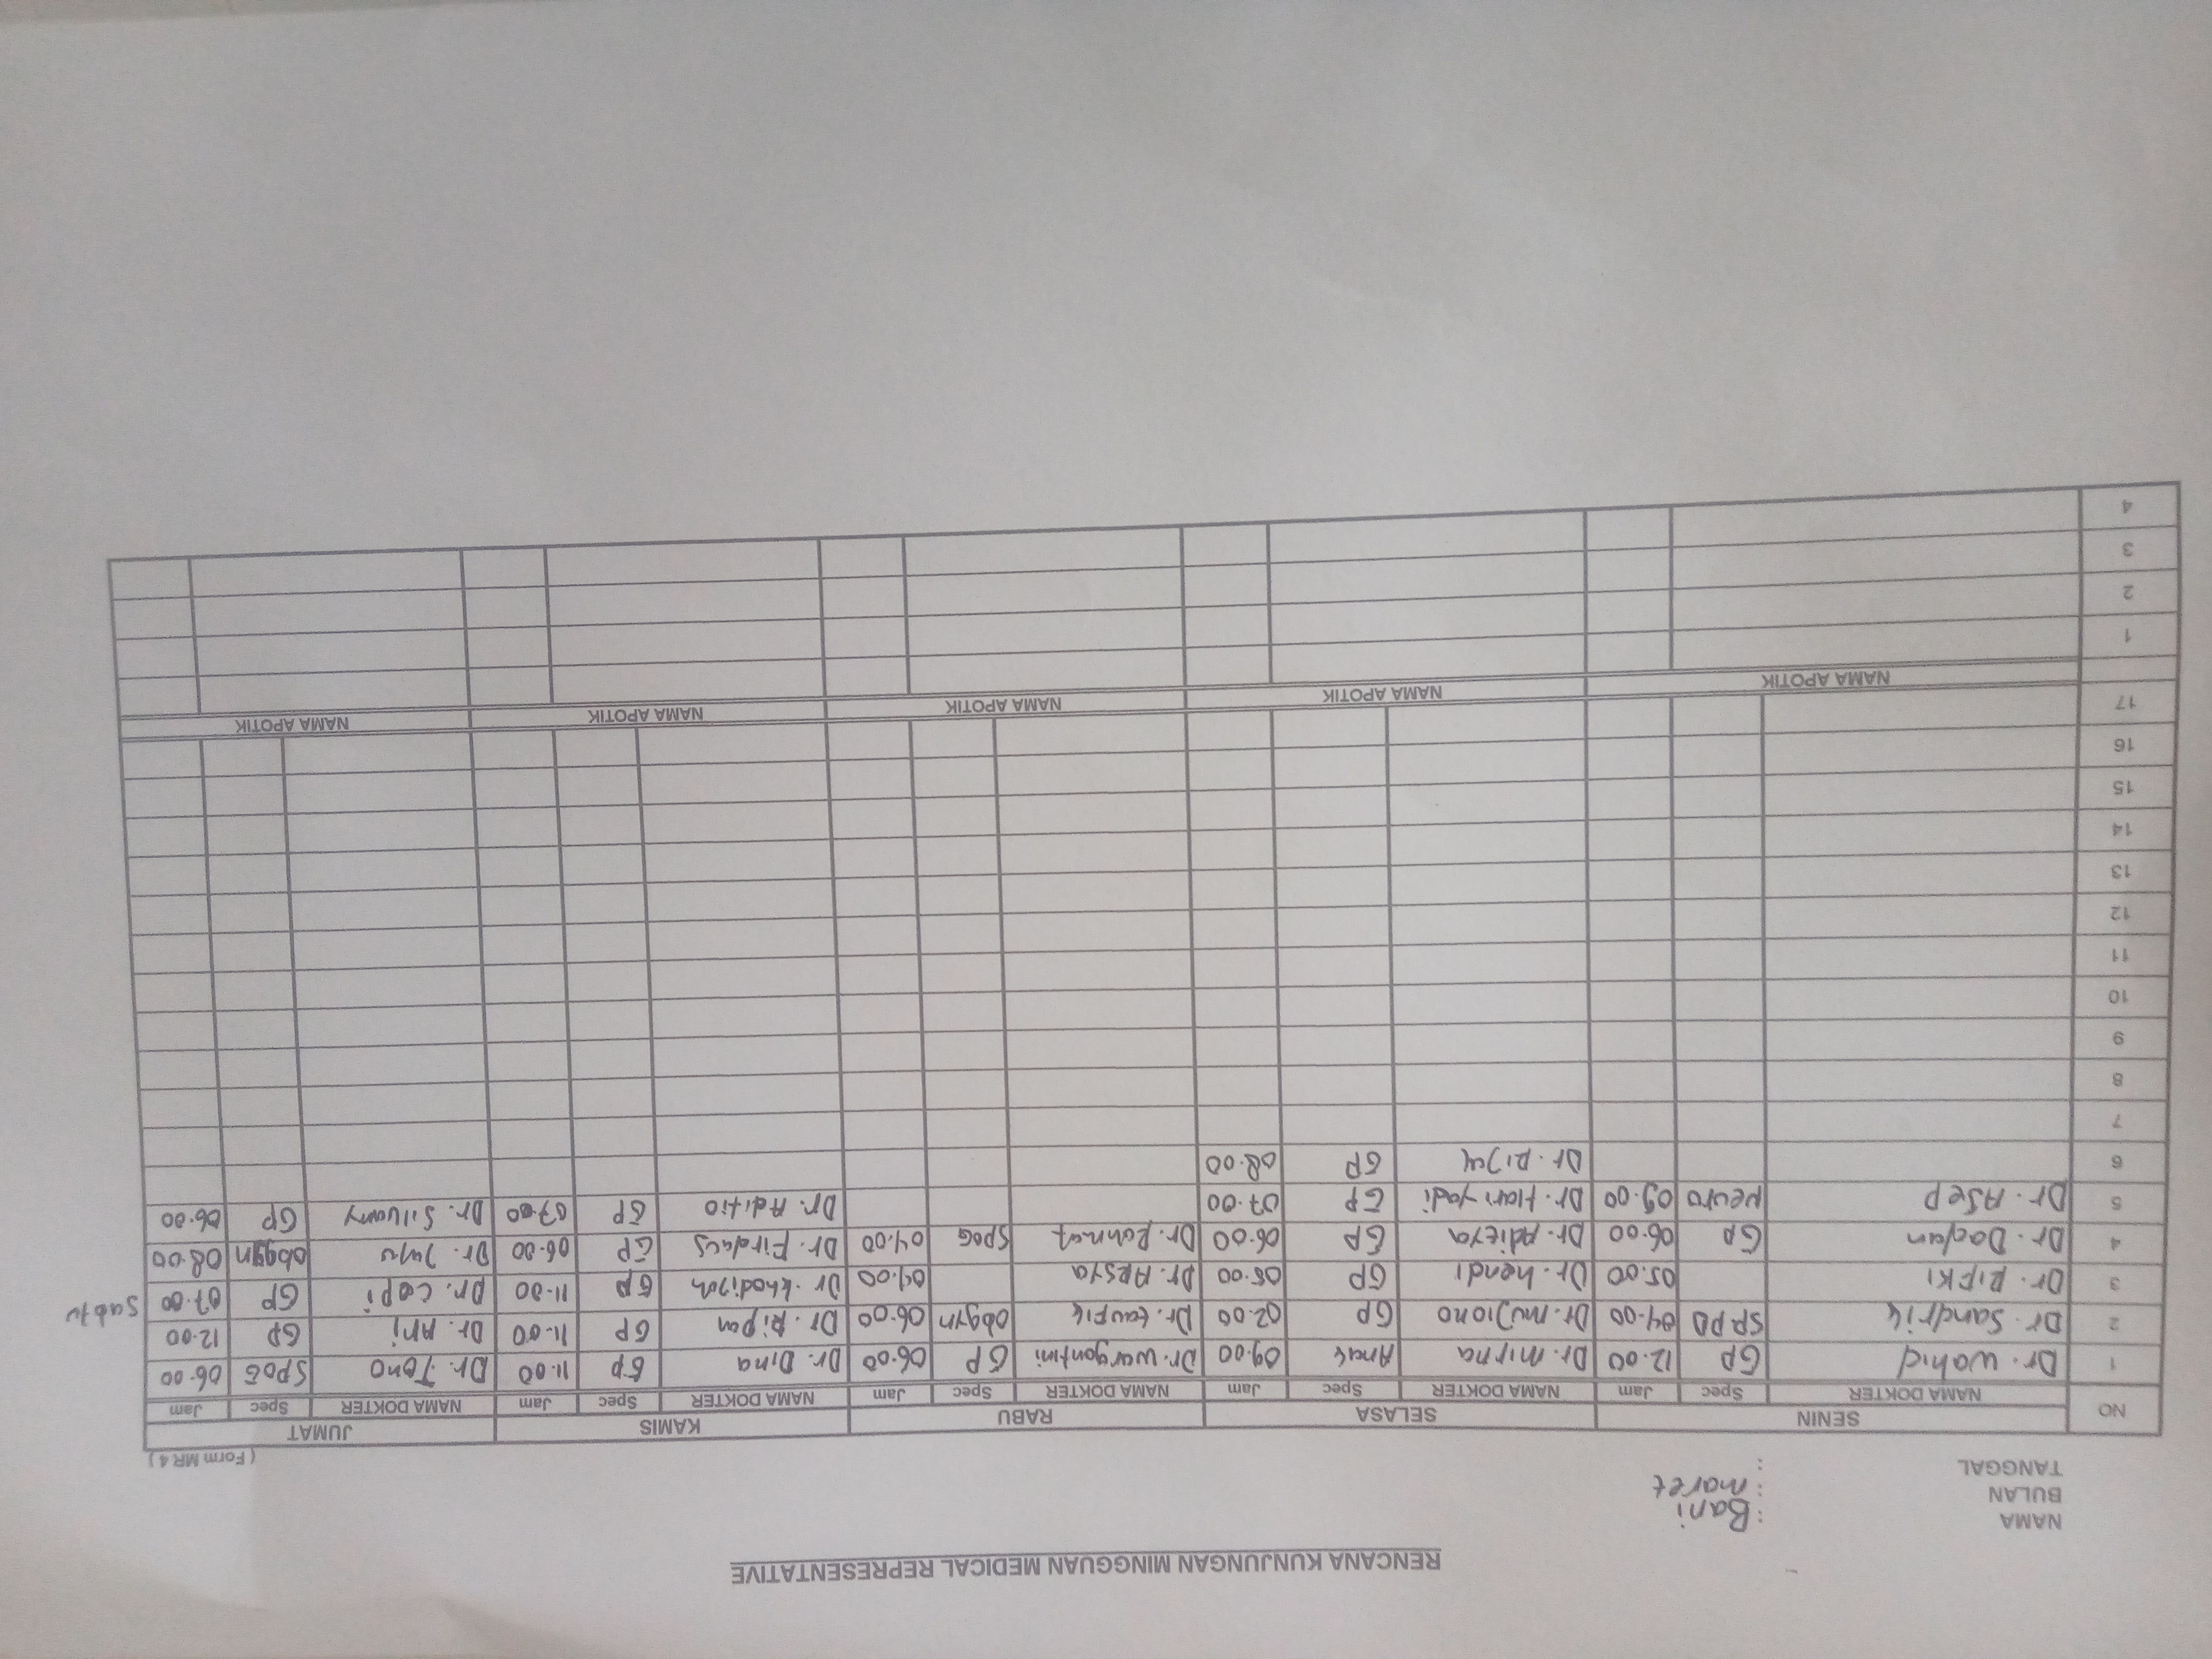 RENCANA KUNJUNGAN MINGGUAN MEDICAL REPRESENTATIVE
NAMA : Bani
BULAN : maret
TANGGAL :
( Form MR 4 )
NO SENIN SELASA RABU KAMIS JUMAT
NAMA DOKTER Spec Jam NAMA DOKTER Spec Jam NAMA DOKTER Spec Jam NAMA DOKTER Spec Jam NAMA DOKTER Spec Jam
1 Dr. Wahid GP 12.00 Dr. Mirna Anak 09.00 Dr. Wargantini GP 06.00 Dr. Dina GP 11.00 Dr. Tono SPOG 06.00
2 Dr. Sandrik SPPD 04.00 Dr. Mujiono GP 02.00 Dr. taufik Obgyn 06.00 Dr. Ripan GP 11.00 Dr. Ani GP 12.00
3 Dr. RIFKI 05.00 Dr. hendi GP 05.00 Dr. ARSYA 04.00 Dr. khodijah GP 11.00 Dr. Cepi GP 07.00 Sabtu
4 Dr. Dadan GP 06.00 Dr. Aditya GP 06.00 Dr. Rahmat SPOG 04.00 Dr. Firdaus GP 06.00 Dr. Juju obgyn 08.00
5 Dr. ASEP Neuro 09.00 Dr. Hariyadi GP 07.00 Dr. Aditio GP 07.00 Dr. Silvany GP 06.00
6 Dr. GP 08.00
7
8
9
10
11
12
13
14
15
16
17
NAMA APOTIK NAMA APOTIK NAMA APOTIK NAMA APOTIK NAMA APOTIK
1
2
3
4